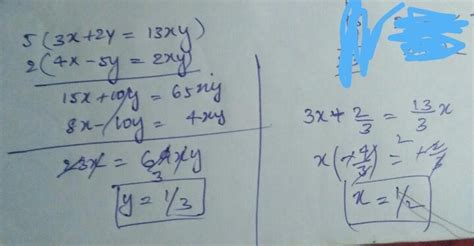 5(3x+2y = 13xy)
2(4x-5y = 2xy)
15x+10y = 65xy
8x-10y = 4xy
23x = 69xy
3
y = 1/3
3x+ 2/3 = 13/3 x
x = 1/2